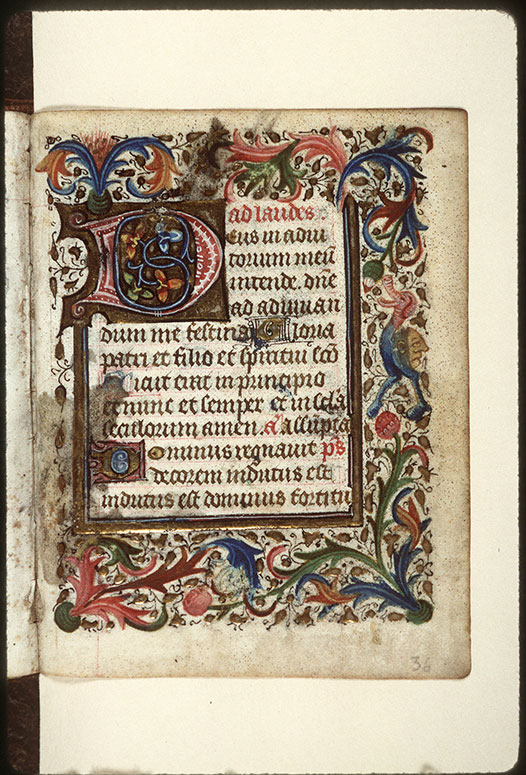 ad laudes
Deus in adiu
torium meū
intende. dn̄e
ad adiuuan
dum me festina Gloria
patri et filio et spiritui scō
Sicut erat in principio
et nunc et semper et in sclā
seculorum amen. añ Assūpta
Dominus regnauit ps̄
decorem indutus est
indutus est dominus fortitu
36